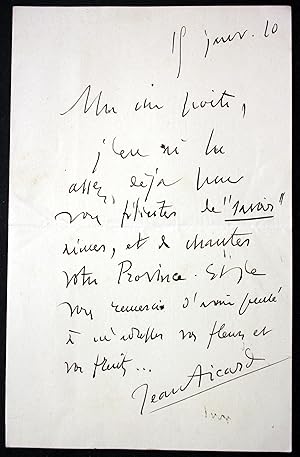 15 janv. 10
Mon cher poète,
j'en ai lu
assez, déjà pour
vous féliciter de "savoir"
rimer, et de chanter
votre Province. Et je
vous remercie d'avoir pensé
à m'adresser vos fleurs et
vos fruits...
Jean Aicard